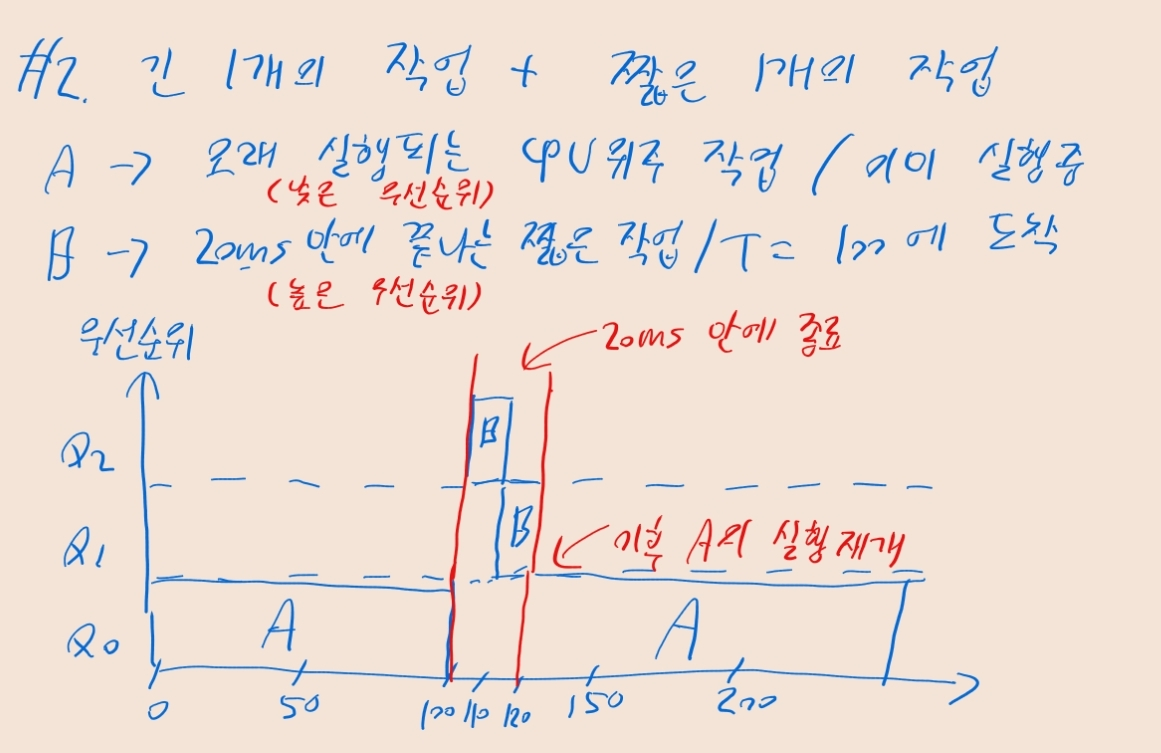 #2. 긴 1개의 작업 + 짧은 1개의 작업
A → 오래 실행되는 CPU위주 작업 / 이미 실행중
(낮은 우선순위)
B → 20ms 안에 끝나는 짧은 작업 / T = 100 에 도착
(높은 우선순위)
우선순위
20ms 안에 종료
Q2
B
Q1
B
이후 A의 실행재개
Q0
A
A
0 50 100 110 120 150 200